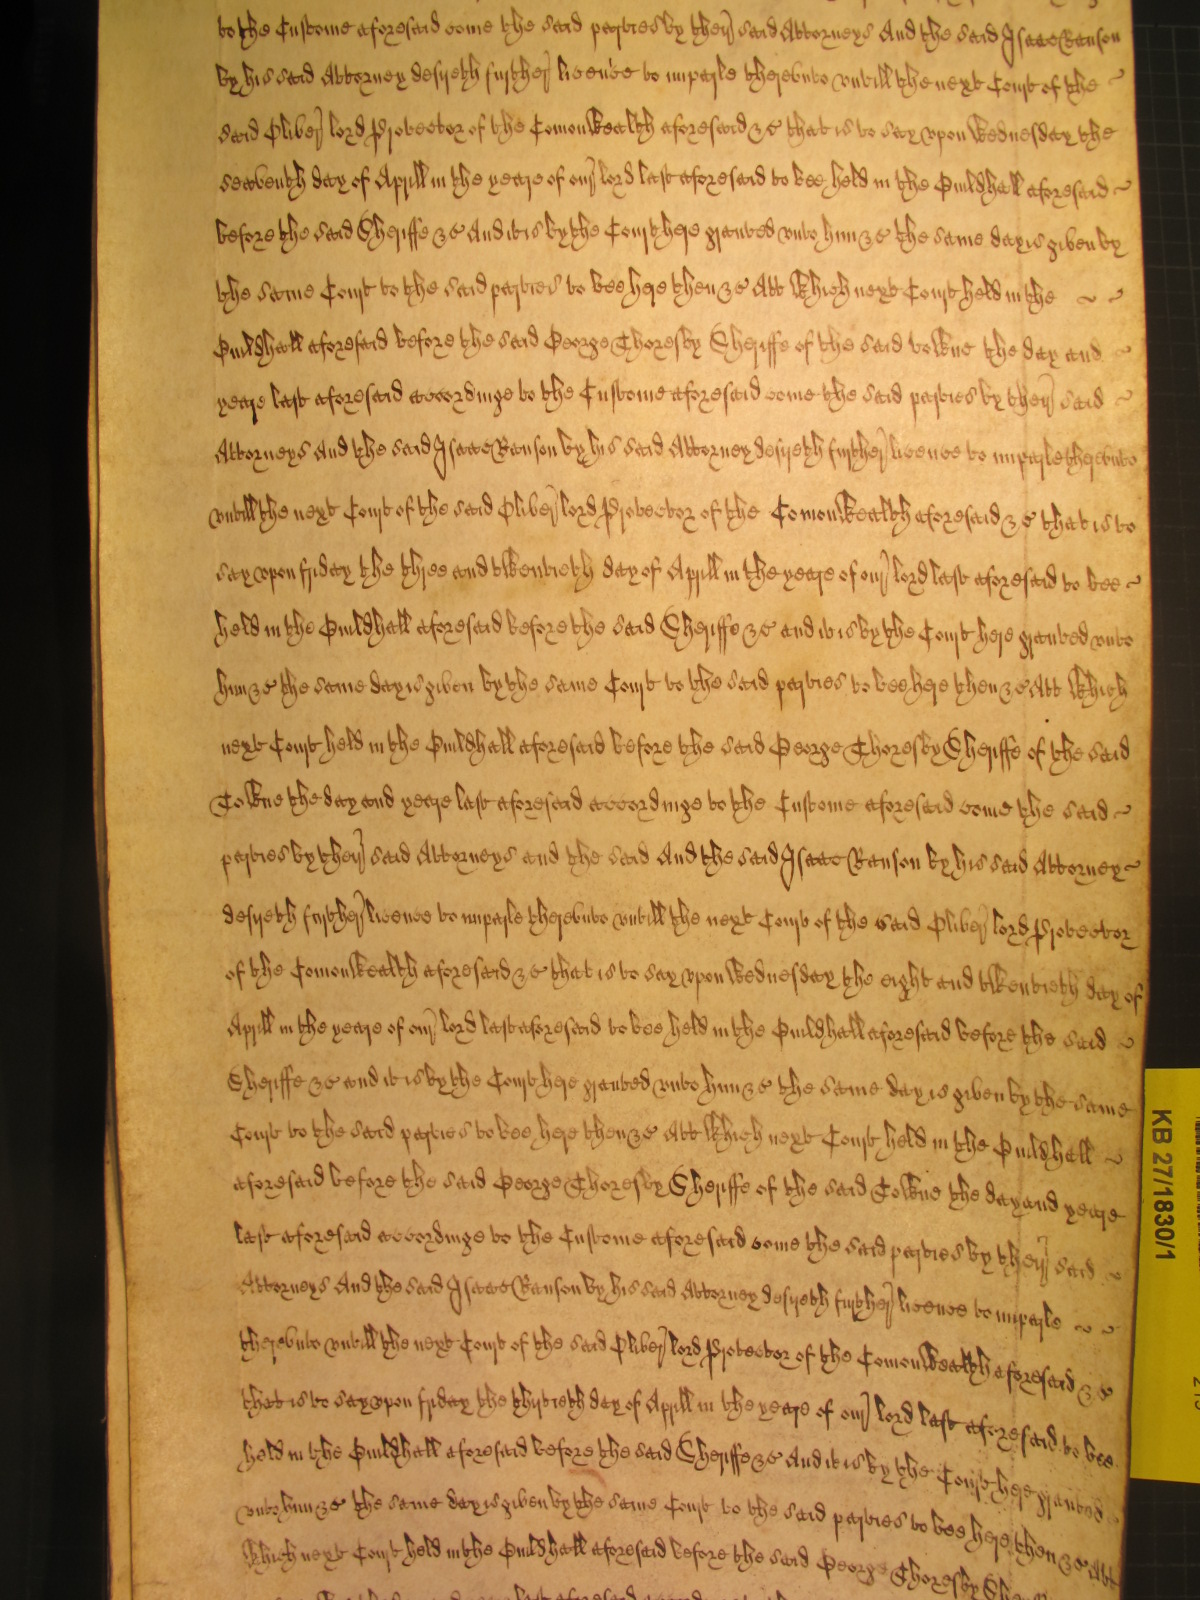 to the Custome aforesaid come the said parties by their said Attorneys And the said Isaac Ranson
by his said Attorney desireth further licence to imparle thereunto untill the next Court of the
said Oliver lord Protector of the Comonwealth aforesaid &c that is to say upon Wednesday the
seaventh day of Aprill in the yeare of our lord last aforesaid to bee held in the Guildhall aforesaid
before the said Sheriffe &c And it is by the Court here graunted unto him &c the same day is given by
the same Court to the said parties to bee here then &c Att which next Court held in the
Guildhall aforesaid before the said George Thoresby Sheriffe of the said towne the day and
yeare last aforesaid accordinge to the Custome aforesaid come the said parties by their said
Attorneys And the said Isaac Ranson by his said Attorney desireth further licence to imparle thereunto
untill the next Court of the said Oliver lord Protector of the Comonwealth aforesaid &c that is to
say upon friday the three and twentieth day of Aprill in the yeare of our lord last aforesaid to bee
held in the Guildhall aforesaid before the said Sheriffe &c and it is by the Court here graunted unto
him &c the same day is given by the same Court to the said parties to bee here then &c Att which
next Court held in the Guildhall aforesaid before the said George Thoresby Sheriffe of the said
Towne the day and yeare last aforesaid accordinge to the Custome aforesaid come the said
parties by their said Attorneys and the said And the said Isaac Ranson by his said Attorney
desireth further licence to imparle thereunto untill the next Court of the said Oliver lord Protector
of the Comonwealth aforesaid &c that is to say upon Wednesday the eight and twentieth day of
Aprill in the yeare of our lord last aforesaid to bee held in the Guildhall aforesaid before the said
Sheriffe &c and it is by the Court here graunted unto him &c the same day is given by the same
Court to the said parties to bee here then &c Att which next Court held in the Guildhall
aforesaid before the said George Thoresby Sheriffe of the said Towne the day and yeare
last aforesaid accordinge to the Custome aforesaid come the said parties by their said
Attorneys And the said Isaac Ranson by his said Attorney desireth further licence to imparle
thereunto untill the next Court of the said Oliver lord Protector of the Comonwealth aforesaid &c
that is to say upon friday the thirtieth day of Aprill in the yeare of our lord last aforesaid to bee
held in the Guildhall aforesaid before the said Sheriffe &c And it is by the Court here graunted
unto him &c the same day is given by the same Court to the said parties to bee here then &c Att
which next Court held in the Guildhall aforesaid before the said George Thoresby
KB 27/1830/1